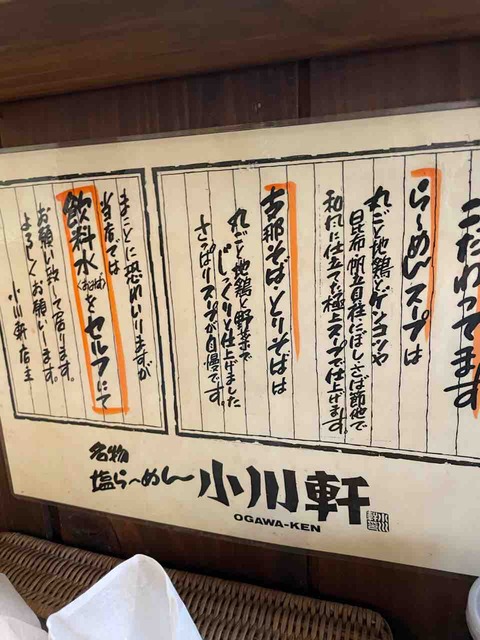 こだわってます
らーめんスープは
丸ごと地鶏とゲンコツや
昆布・帆立貝柱・にぼし・さば節他で
和風に仕立てた極上スープで仕上げます。
古那そば・とりそばは
丸ごと地鶏と野菜で
じっくりと仕上げました
さっぱりスープが自慢です。
まことに恐れいりますが
当店では
飲料水(おひや)をセルフにて
お願い致して居ります。
よろしくお願いします。
小川軒店主
名物
塩らーめん
小川軒
OGAWA-KEN